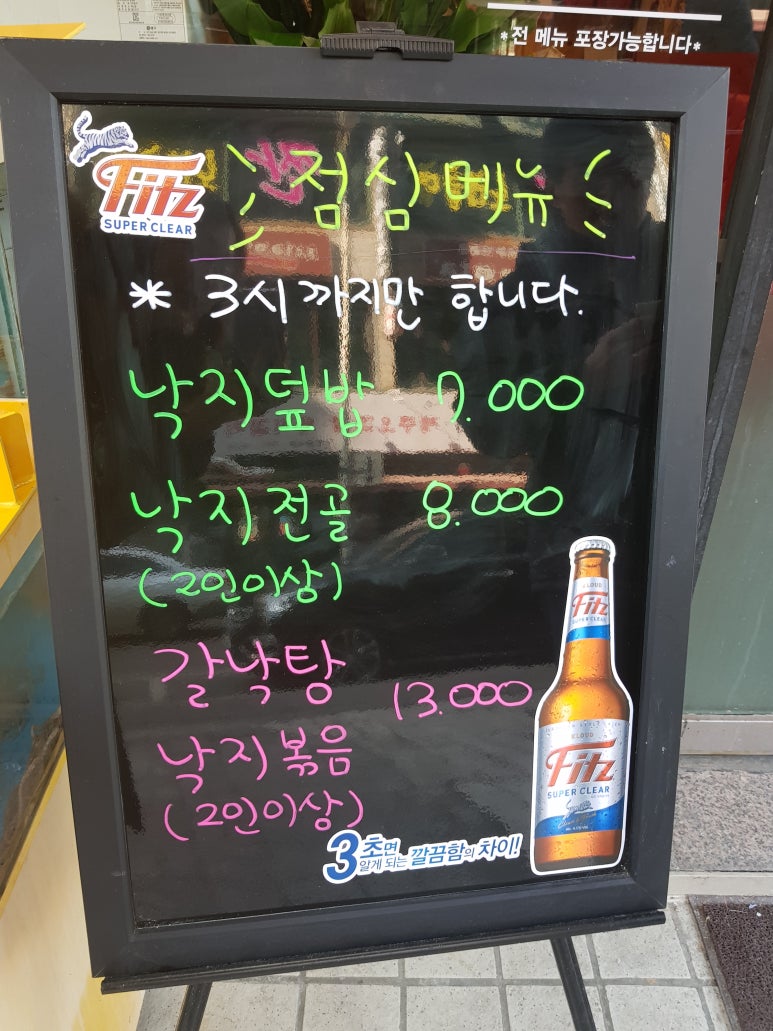 *전 메뉴 포장가능합니다*
Fitz
SUPER CLEAR
점심메뉴
* 3시까지만 합니다.
낙지덮밥 7.000
낙지전골 8.000
(2인이상)
갈낙탕
13.000
낙지볶음
(2인이상)
CLOUD
Fitz
SUPER CLEAR
CLOUD
Fitz
SUPER CLEAR
3초면
알게 되는 깔끔함의 차이!